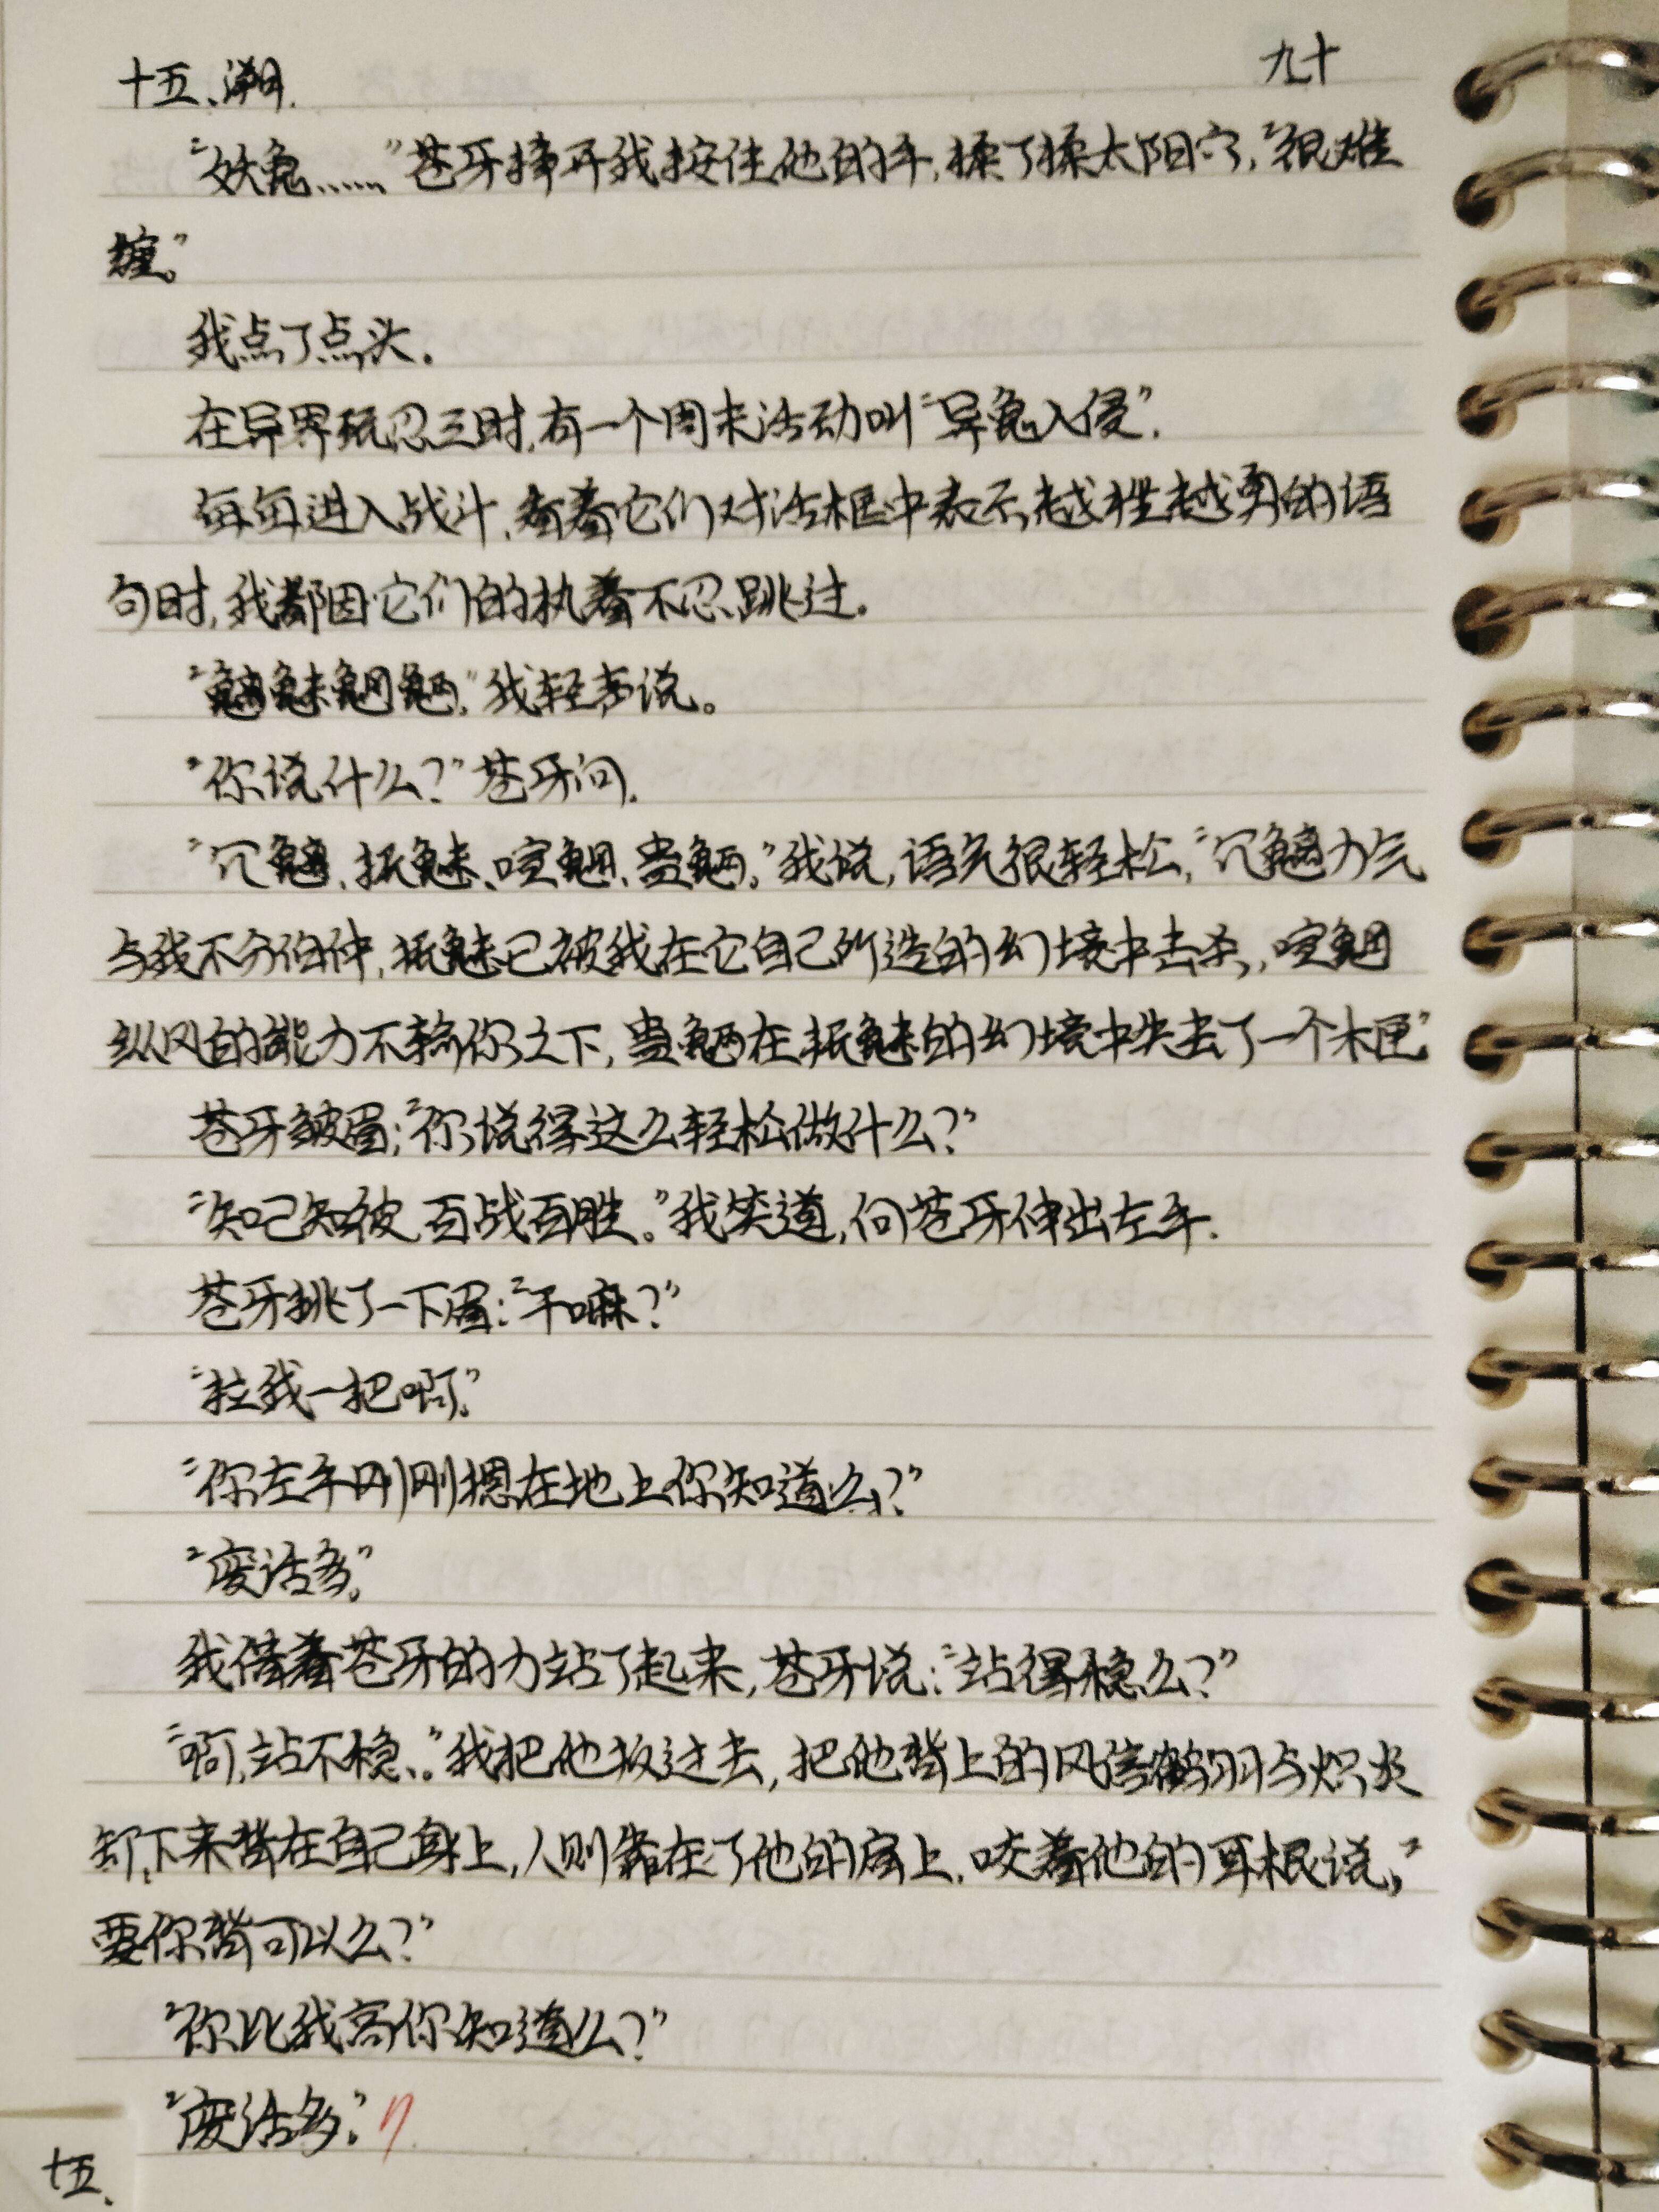 十五、溯. 九十
“妖兔……”苍牙挣开我按住他的手,揉了揉太阳穴,“很难
缠。”
我点了点头.
在异界玩忍三时,有一个周末活动叫“异兔入侵”.
每每进入战斗,看着它们对话框中表示越挫越勇的语
句时,我都因它们的执着不忍跳过.
“魑魅魍魉,”我轻声说。
“你说什么?”苍牙问.
“穴魑、抵魅、喧魍、蛊魉。”我说,语气很轻松,“穴魑力气
与我不分伯仲,抵魅已被我在它自己所造的幻境中击杀,喧魍
纵风的能力不输你之下,蛊魉在抵魅的幻境中失去了一个木匣”
苍牙皱眉:“你说得这么轻松做什么?”
“知己知彼,百战百胜。”我笑道,向苍牙伸出左手.
苍牙挑了一下眉:“干嘛?”
“拉我一把啊.”
“你左手刚刚摁在地上你知道么?”
“废话多.”
我借着苍牙的力站了起来,苍牙说:“站得稳么?”
“啊,站不稳.”我把他扳过去,把他背上的风信鹤羽与炽炎
卸下来背在自己身上,人则靠在了他的肩上.咬着他的耳根说,“
要你背可以么?”
“你比我高你知道么?”
“废话多.”
十五、